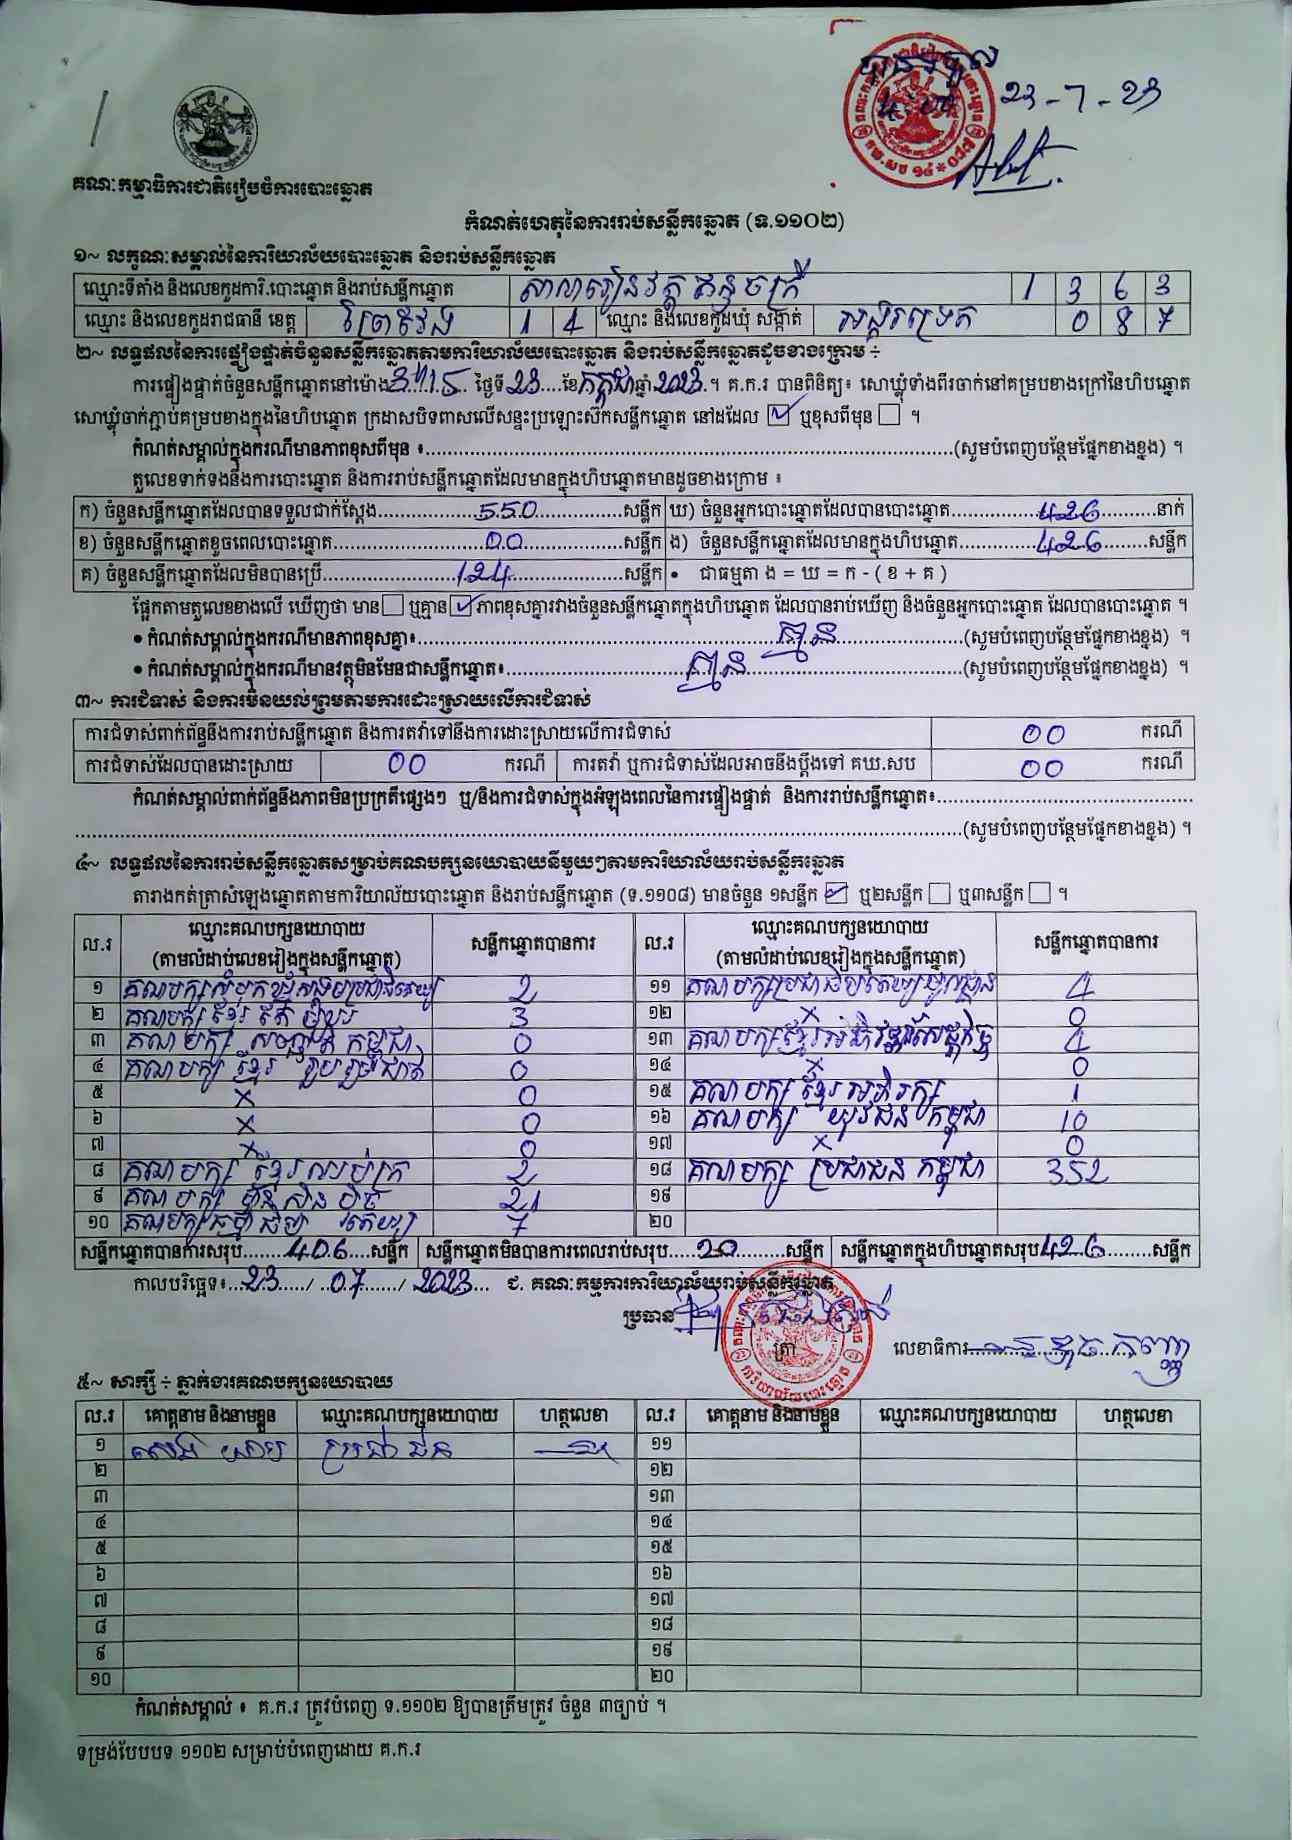 23-7-23
គណៈកម្មាធិការជាតិរៀបចំការបោះឆ្នោត
កំណត់ហេតុនៃការរាប់សន្លឹកឆ្នោត (ទ.១១០២)
១~ លក្ខណៈសម្គាល់នៃការិយាល័យបោះឆ្នោត និងរាប់សន្លឹកឆ្នោត
ឈ្មោះទីតាំង និងលេខកូដការិ.បោះឆ្នោត និងរាប់សន្លឹកឆ្នោត សាលារៀនវត្ត 1 3 6 3
ឈ្មោះ និងលេខកូដរាជធានី ខេត្ត ព្រៃវែង 1 4 ឈ្មោះ និងលេខកូដឃុំ សង្កាត់ អង្គរទ្រេត 0 8 7
២~ លទ្ធផលនៃការផ្ទៀងផ្ទាត់ចំនួនសន្លឹកឆ្នោតតាមការិយាល័យបោះឆ្នោត និងរាប់សន្លឹកឆ្នោតដូចខាងក្រោម ÷
ការផ្ទៀងផ្ទាត់ចំនួនសន្លឹកឆ្នោតនៅម៉ោង 3:15 ថ្ងៃទី 23 ខែ កក្កដា ឆ្នាំ 2023 ។ គ.ក.រ បានពិនិត្យ៖ សោឃ្លុំទាំងពីរចាក់នៅគម្របខាងក្រៅនៃហិបឆ្នោត
សោឃ្លុំចាក់ភ្ជាប់គម្របខាងក្នុងនៃហិបឆ្នោត ក្រដាសបិទពាសលើសន្ទះប្រឡោះស៊កសន្លឹកឆ្នោត នៅដដែល ☑ ឬខុសពីមុន ☐ ។
កំណត់សម្គាល់ក្នុងករណីមានភាពខុសពីមុន ៖ (សូមបំពេញបន្ថែមផ្នែកខាងខ្នង) ។
តួលេខទាក់ទងនឹងការបោះឆ្នោត និងការរាប់សន្លឹកឆ្នោតដែលមានក្នុងហិបឆ្នោតមានដូចខាងក្រោម ៖
ក) ចំនួនសន្លឹកឆ្នោតដែលបានទទួលជាក់ស្តែង 550 សន្លឹក ឃ) ចំនួនអ្នកបោះឆ្នោតដែលបានបោះឆ្នោត 426 នាក់
ខ) ចំនួនសន្លឹកឆ្នោតខូចពេលបោះឆ្នោត 00 សន្លឹក ង) ចំនួនសន្លឹកឆ្នោតដែលមានក្នុងហិបឆ្នោត 426 សន្លឹក
គ) ចំនួនសន្លឹកឆ្នោតដែលមិនបានប្រើ 124 សន្លឹក • ជាធម្មតា ង = ឃ = ក - ( ខ + គ )
ផ្អែកតាមតួលេខខាងលើ ឃើញថា មាន ☐ ឬគ្មាន ☑ ភាពខុសគ្នារវាងចំនួនសន្លឹកឆ្នោតក្នុងហិបឆ្នោត ដែលបានរាប់ឃើញ និងចំនួនអ្នកបោះឆ្នោត ដែលបានបោះឆ្នោត ។
• កំណត់សម្គាល់ក្នុងករណីមានភាពខុសគ្នា៖ គ្មាន (សូមបំពេញបន្ថែមផ្នែកខាងខ្នង) ។
• កំណត់សម្គាល់ក្នុងករណីមានវត្ថុមិនមែនជាសន្លឹកឆ្នោត៖ គ្មាន (សូមបំពេញបន្ថែមផ្នែកខាងខ្នង) ។
៣~ ការជំទាស់ និងការមិនយល់ព្រមតាមការដោះស្រាយលើការជំទាស់
ការជំទាស់ពាក់ព័ន្ធនឹងការរាប់សន្លឹកឆ្នោត និងការតវ៉ាទៅនឹងការដោះស្រាយលើការជំទាស់ 00 ករណី
ការជំទាស់ដែលបានដោះស្រាយ 00 ករណី ការតវ៉ា ឬការជំទាស់ដែលអាចនឹងប្តឹងទៅ គឃ.សប 00 ករណី
កំណត់សម្គាល់ពាក់ព័ន្ធនឹងភាពមិនប្រក្រតីផ្សេងៗ ឬ/និងការជំទាស់ក្នុងអំឡុងពេលនៃការផ្ទៀងផ្ទាត់ និងការរាប់សន្លឹកឆ្នោត៖
(សូមបំពេញបន្ថែមផ្នែកខាងខ្នង) ។
៤~ លទ្ធផលនៃការរាប់សន្លឹកឆ្នោតសម្រាប់គណបក្សនយោបាយនីមួយៗតាមការិយាល័យរាប់សន្លឹកឆ្នោត
តារាងកត់ត្រាសំឡេងឆ្នោតតាមការិយាល័យបោះឆ្នោត និងរាប់សន្លឹកឆ្នោត (ទ.១១០៨) មានចំនួន ១សន្លឹក ☑ ឬ២សន្លឹក ☐ ឬ៣សន្លឹក ☐ ។
ល.រ ឈ្មោះគណបក្សនយោបាយ (តាមលំដាប់លេខរៀងក្នុងសន្លឹកឆ្នោត) សន្លឹកឆ្នោតបានការ ល.រ ឈ្មោះគណបក្សនយោបាយ (តាមលំដាប់លេខរៀងក្នុងសន្លឹកឆ្នោត) សន្លឹកឆ្នោតបានការ
១ គណបក្សសំបុកឃ្មុំសង្គមប្រជាធិបតេយ្យ 2 ១១ គណបក្សប្រជាធិបតេយ្យមូលដ្ឋាន 4
២ គណបក្ស ខ្មែរ តែ មួយ 3 ១២ × 0
៣ គណបក្ស សញ្ជាតិ កម្ពុជា 0 ១៣ គណបក្សខ្មែរអភិវឌ្ឍន៍សេដ្ឋកិច្ច 4
៤ គណបក្ស ខ្មែរ រួបរួមជាតិ 0 ១៤ × 0
៥ × 0 ១៥ គណបក្ស ខ្មែរ អភិរក្ស 1
៦ × 0 ១៦ គណបក្ស យុវជន កម្ពុជា 10
៧ × 0 ១៧ × 0
៨ គណបក្ស ខ្មែរ ឈប់ក្រ 2 ១៨ គណបក្ស ប្រជាជន កម្ពុជា 352
៩ គណបក្ស ហ៊្វុនស៊ិនប៉ិច 21 ១៩
១០ គណបក្សធម្មាធិបតេយ្យ 7 ២០
សន្លឹកឆ្នោតបានការសរុប 406 សន្លឹក សន្លឹកឆ្នោតមិនបានការពេលរាប់សរុប 20 សន្លឹក សន្លឹកឆ្នោតក្នុងហិបឆ្នោតសរុប 426 សន្លឹក
កាលបរិច្ឆេទ៖ 23 / 07 / 2023 ជ. គណៈកម្មការការិយាល័យរាប់សន្លឹកឆ្នោត
ប្រធាន
ត្រា លេខាធិការ
៥~ សាក្សី ÷ ភ្នាក់ងារគណបក្សនយោបាយ
ល.រ គោត្តនាម និងនាមខ្លួន ឈ្មោះគណបក្សនយោបាយ ហត្ថលេខា ល.រ គោត្តនាម និងនាមខ្លួន ឈ្មោះគណបក្សនយោបាយ ហត្ថលេខា
១ ប្រជាជន ១១
២ ១២
៣ ១៣
៤ ១៤
៥ ១៥
៦ ១៦
៧ ១៧
៨ ១៨
៩ ១៩
១០ ២០
កំណត់សម្គាល់ ៖ គ.ក.រ ត្រូវបំពេញ ទ.១១០២ ឱ្យបានត្រឹមត្រូវ ចំនួន ៣ច្បាប់ ។
ទម្រង់បែបបទ ១១០២ សម្រាប់បំពេញដោយ គ.ក.រ